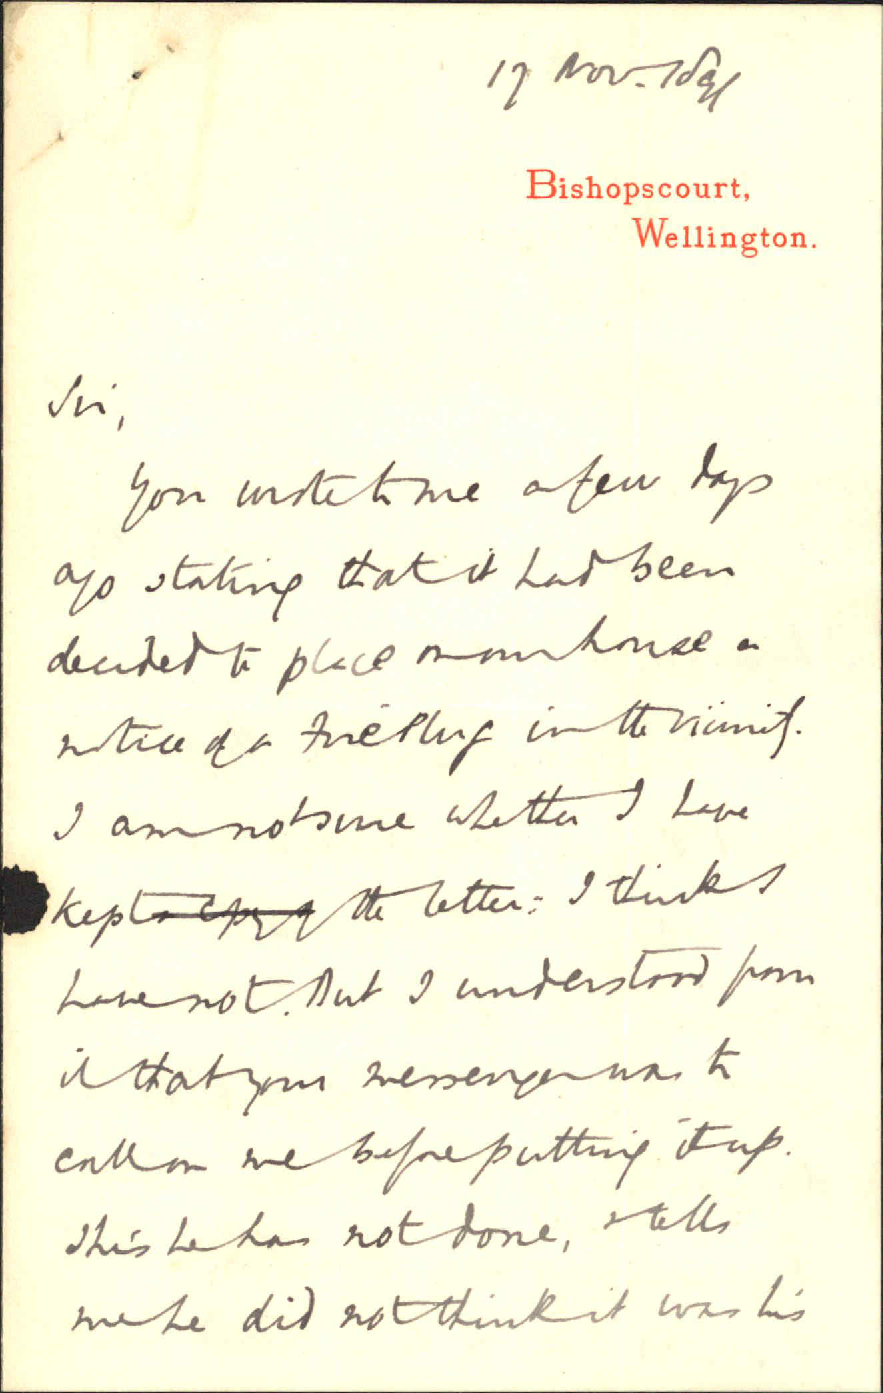 17 Nov. 1891
Bishopscourt,
Wellington.
Sir,
You wrote to me a few days
ago stating that it had been
decided to place on our house a
notice of a Fire Plug in the vicinity.
I am not sure whether I have
kept a copy of the letter: I think I
have not. But I understood from
it that your messenger was to
call on me before putting it up.
This he has not done, & tells
me he did not think it was his